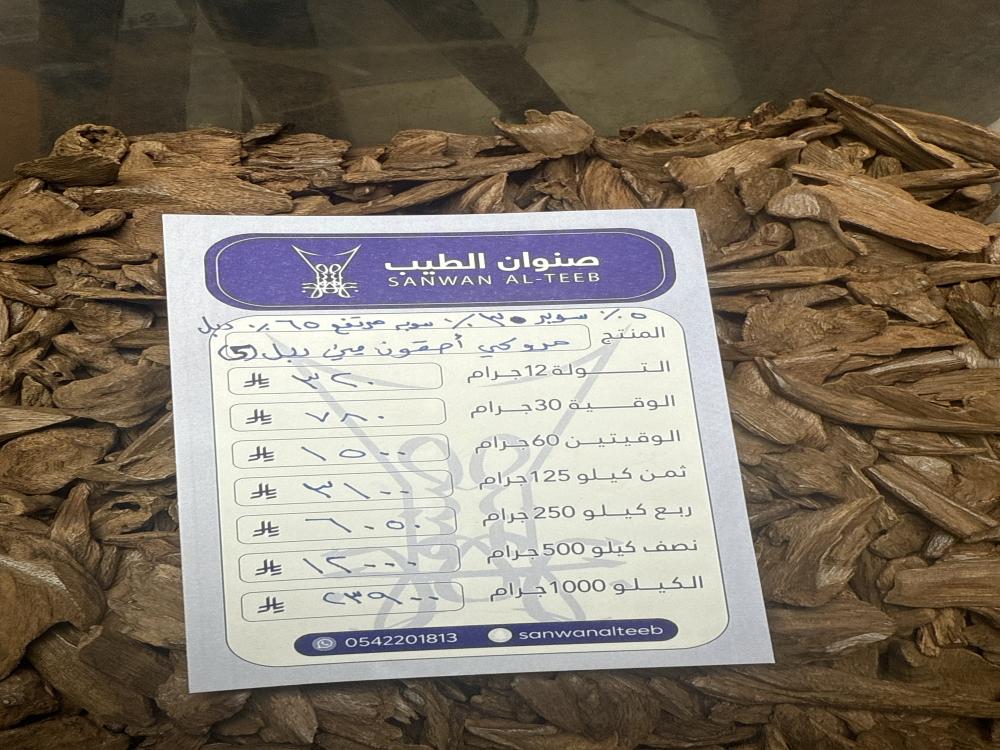 صنوان الطيب
SANWAN AL-TEEB
٥٪ سوبر ٣٠٪ سوبر مرتفع ٦٥٪ دبل
المنتج مروكي أصفون ميني دبل (5)
التولة 12جرام ٣٢٠
الوقية 30جرام ٧٨٠
الوقيتين 60جرام ١٥٠٠
ثمن كيلو 125جرام ٣١٠٠
ربع كيلو 250جرام ٦٠٥٠
نصف كيلو 500جرام ١٢٠٠٠
الكيلو 1000جرام ٢٣٩٠٠
0542201813 sanwanalteeb